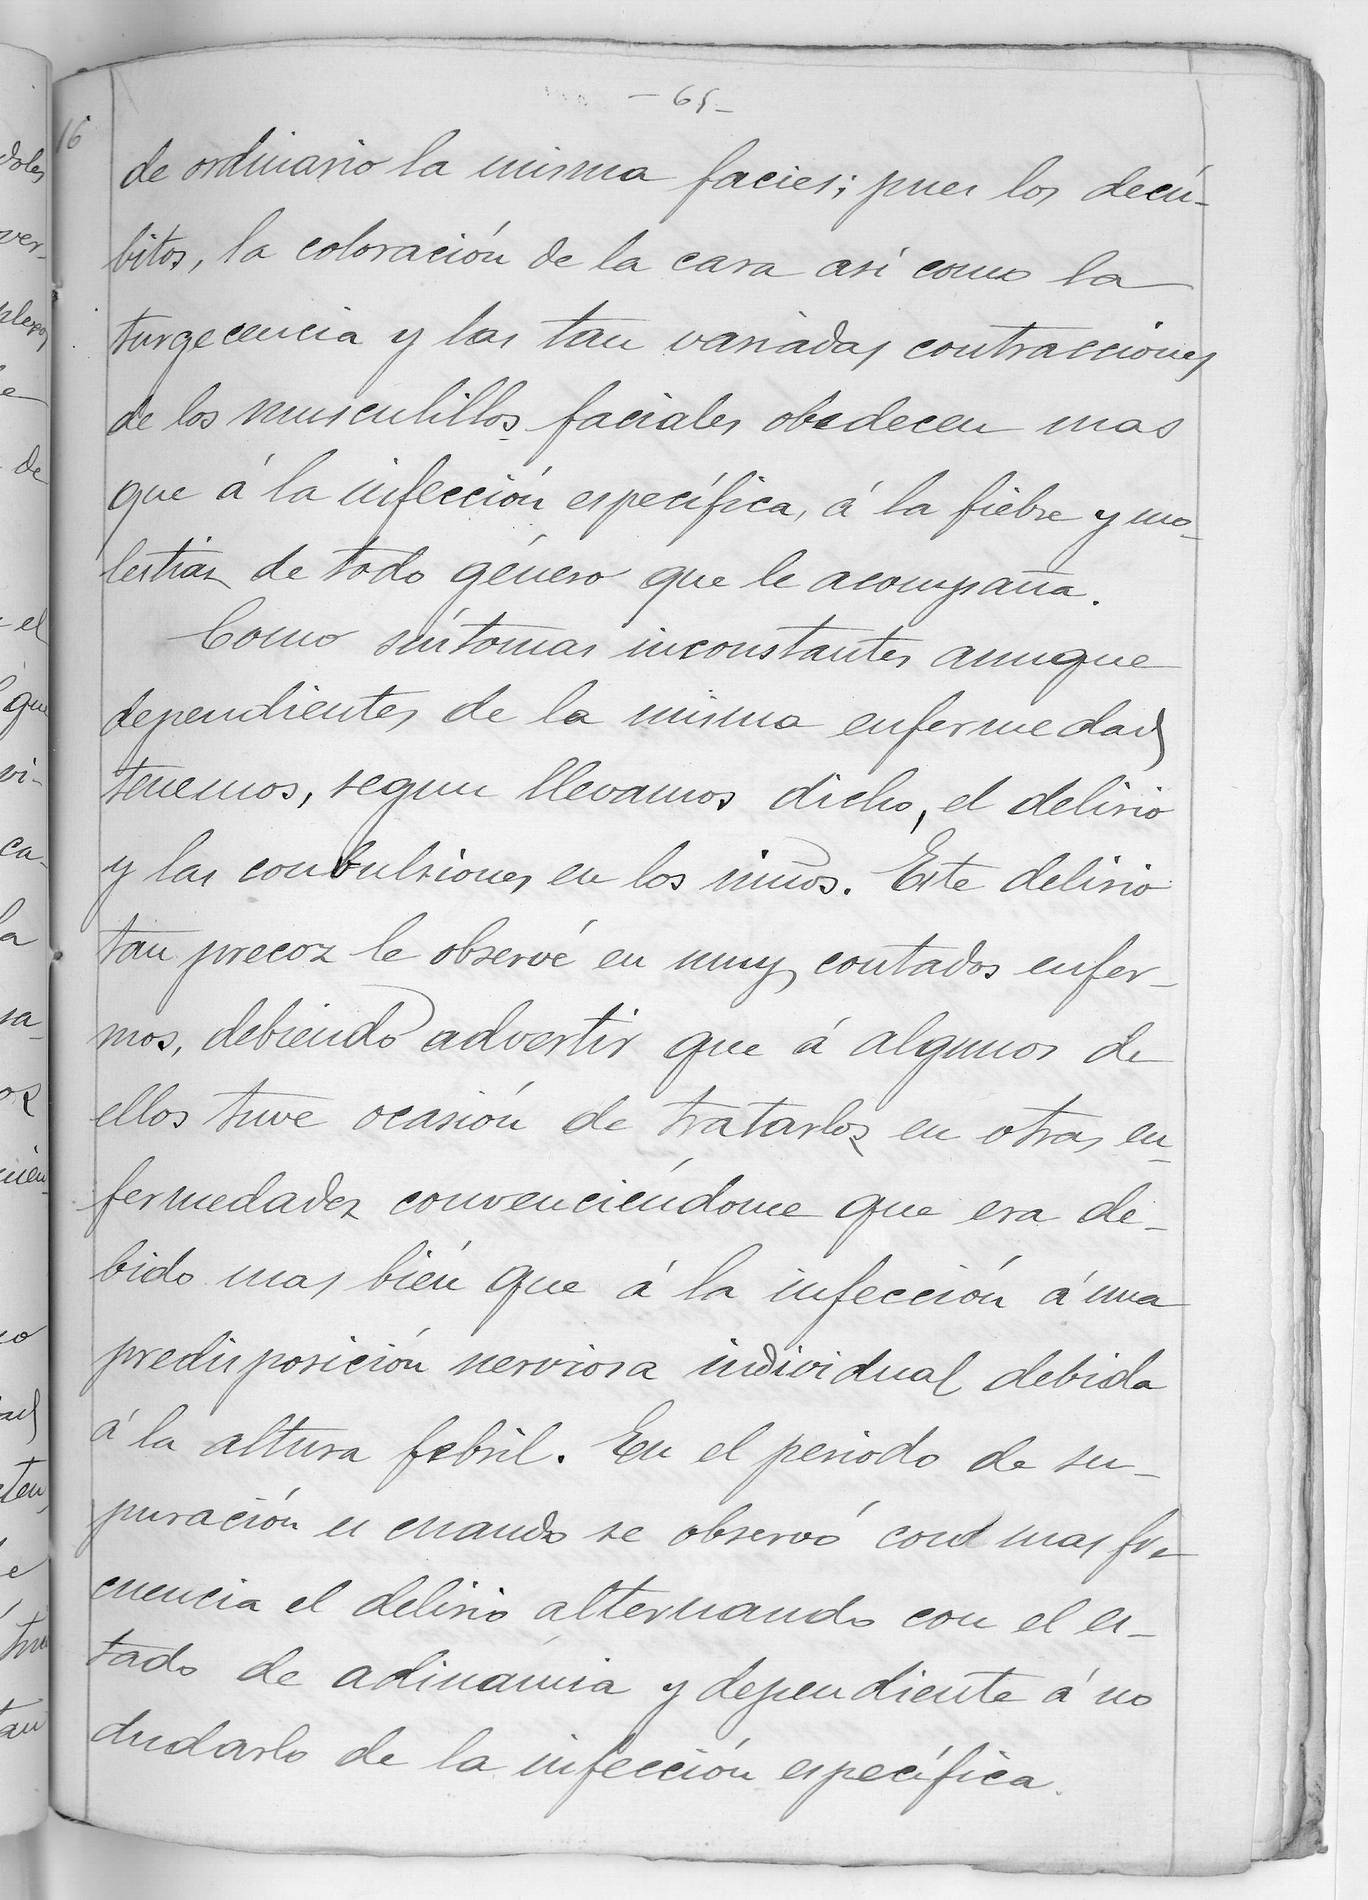 - 65 -
16
de ordinario la misma facies; pues los decú-
bitos, la coloración de la cara así como la
turgecencia y las tan variadas contracciones
de los musculillos faciales obedecen mas
que á la infección específica, á la fiebre y mo-
lestias de todo género que le acompaña.
Como síntomas inconstantes aunque
dependientes de la misma enfermedad
tenemos, segun llevamos dicho, el delirio
y las conbulsiones en los niños. Este delirio
tan precoz le observé en muy contados enfer-
mos, debiendo advertir que á algunos de
ellos tuve ocasión de tratarlos en otras en-
fermedades convenciéndome que era de-
bido mas bién que á la infección á una
predisposición nerviosa individual debida
á la altura febril. En el periodo de su-
puración es cuando se observó con mas fre-
cuencia el delirio alternando con el es-
tado de adinámia y dependiente á no
dudarlo de la infección específica.